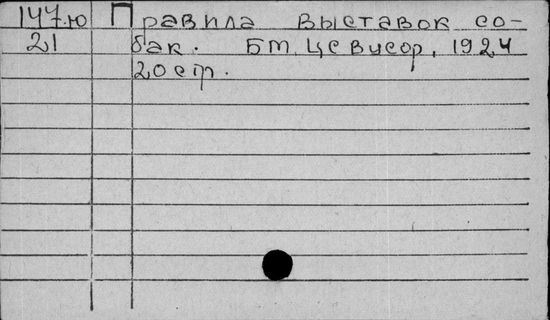 147.ю Правила выставок со-
21 бак. БМ, ЦС Вусор, 1924
20 стр.